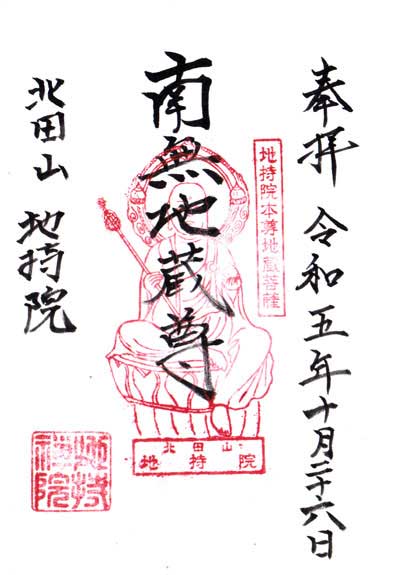 奉拝 令和五年十月二十六日
地持院本尊地蔵菩薩
南無地蔵尊
北田山
地持院
北田山 地持院
地持院